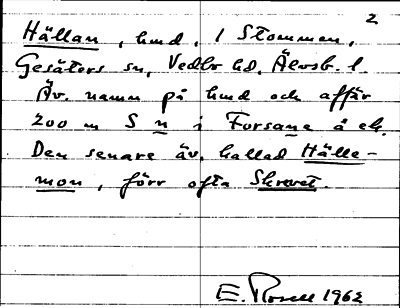 2
Hällan, hmd, i Stommen,
Gesäters sn, Vedbo hd, Älvsb. l.
Äv. namn på hmd och affär
200 m S n i Forsane å ek.
Den senare äv. kallad Hälle-
mon, förr ofta Skrevet.
E. Rosell 1962